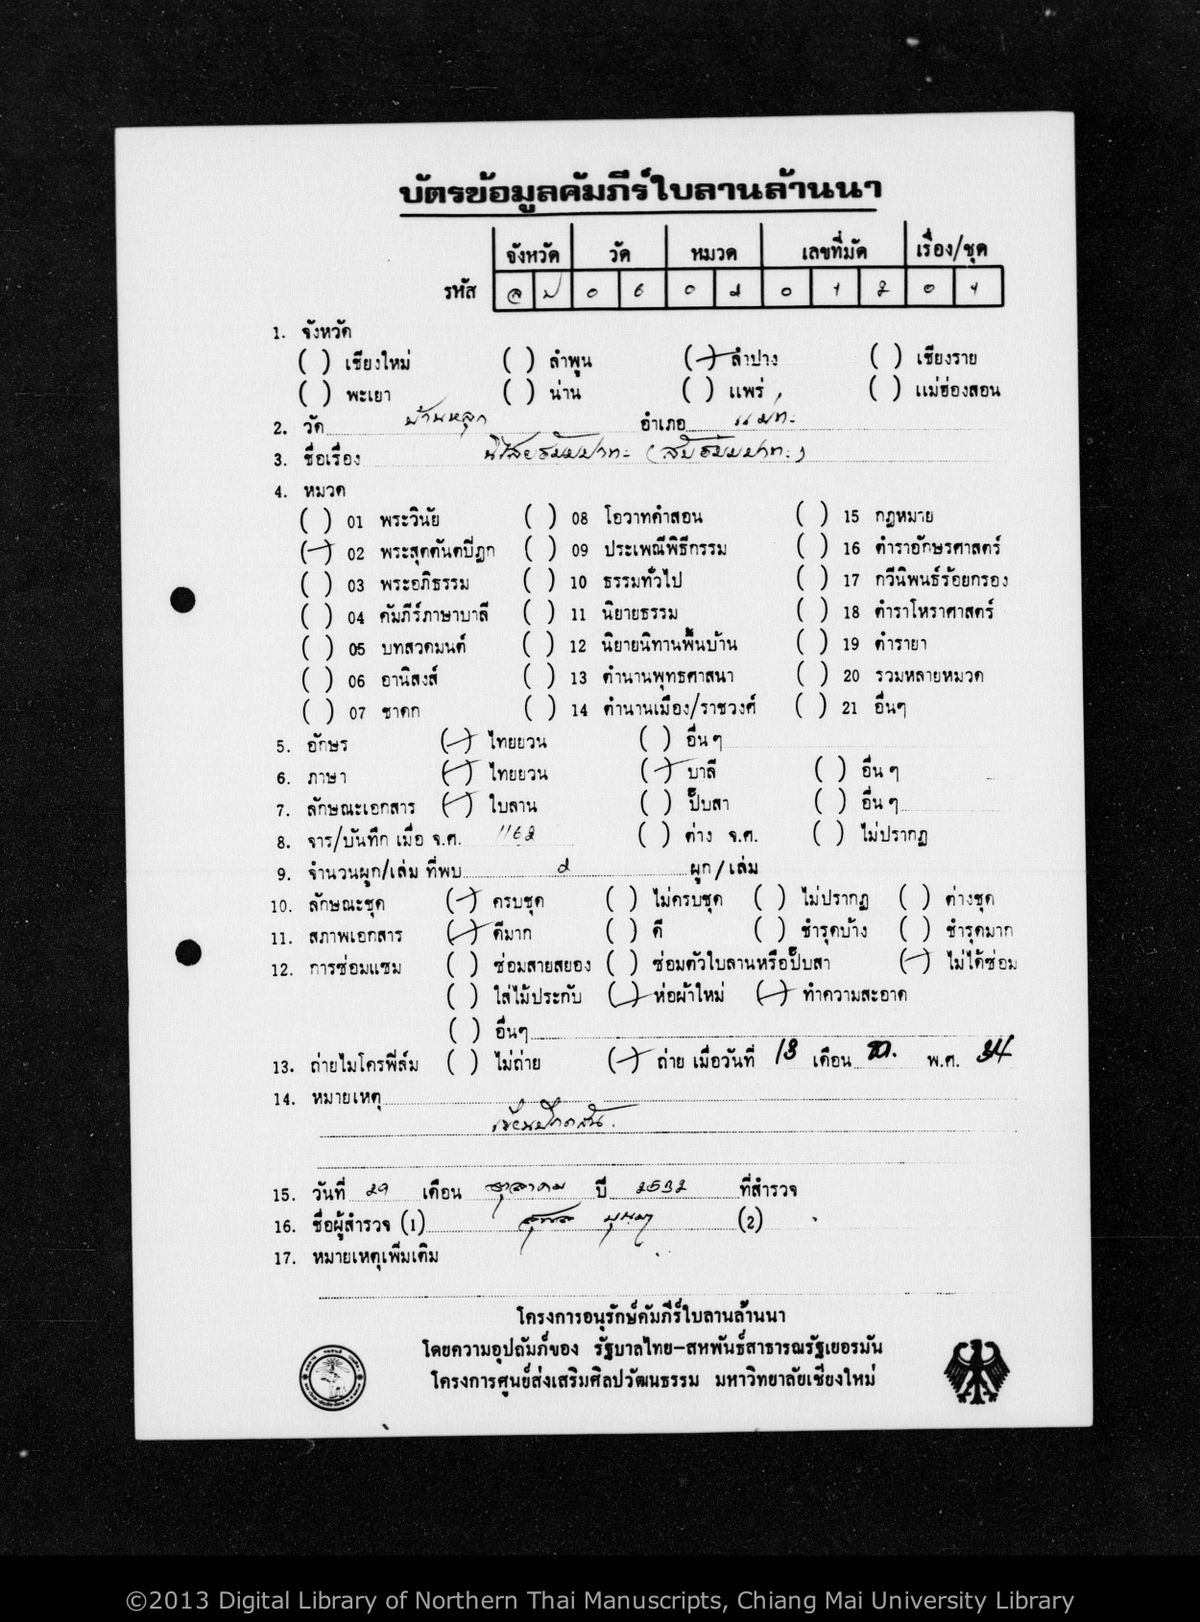 บัตรข้อมูลคัมภีร์ใบลานล้านนา
จังหวัด วัด หมวด เลขที่มัด เรื่อง/ชุด
รหัส ล ป 0 6 0 2 0 1 2 0 1
1. จังหวัด
( ) เชียงใหม่ ( ) ลำพูน (/) ลำปาง ( ) เชียงราย
( ) พะเยา ( ) น่าน ( ) แพร่ ( ) แม่ฮ่องสอน
2. วัด บ้านหลุก อำเภอ แม่ทะ
3. ชื่อเรื่อง
4. หมวด
( ) 01 พระวินัย ( ) 08 โอวาทคำสอน ( ) 15 กฎหมาย
(/) 02 พระสุตตันตปิฎก ( ) 09 ประเพณีพิธีกรรม ( ) 16 ตำราอักษรศาสตร์
( ) 03 พระอภิธรรม ( ) 10 ธรรมทั่วไป ( ) 17 กวีนิพนธ์ร้อยกรอง
( ) 04 คัมภีร์ภาษาบาลี ( ) 11 นิยายธรรม ( ) 18 ตำราโหราศาสตร์
( ) 05 บทสวดมนต์ ( ) 12 นิยายนิทานพื้นบ้าน ( ) 19 ตำรายา
( ) 06 อานิสงส์ ( ) 13 ตำนานพุทธศาสนา ( ) 20 รวมหลายหมวด
( ) 07 ชาดก ( ) 14 ตำนานเมือง/ราชวงศ์ ( ) 21 อื่นๆ
5. อักษร (/) ไทยยวน ( ) อื่น ๆ
6. ภาษา (/) ไทยยวน (/) บาลี ( ) อื่น ๆ
7. ลักษณะเอกสาร (/) ใบลาน ( ) ปั๊บสา ( ) อื่น ๆ
8. จาร/บันทึก เมื่อ จ.ศ. 1162 ( ) ต่าง จ.ศ. ( ) ไม่ปรากฏ
9. จำนวนผูก/เล่ม ที่พบ 2 ผูก/เล่ม
10. ลักษณะชุด (/) ครบชุด ( ) ไม่ครบชุด ( ) ไม่ปรากฏ ( ) ต่างชุด
11. สภาพเอกสาร (/) ดีมาก ( ) ดี ( ) ชำรุดบ้าง ( ) ชำรุดมาก
12. การซ่อมแซม ( ) ซ่อมสายสยอง ( ) ซ่อมตัวใบลานหรือปั๊บสา (/) ไม่ได้ซ่อม
( ) ใส่ไม้ประกับ (/) ห่อผ้าใหม่ (/) ทำความสะอาด
( ) อื่นๆ
13. ถ่ายไมโครฟิล์ม ( ) ไม่ถ่าย (/) ถ่าย เมื่อวันที่ 13 เดือน พ.ศ. 34
14. หมายเหตุ
15. วันที่ 29 เดือน ตุลาคม ปี 2532 ที่สำรวจ
16. ชื่อผู้สำรวจ (1) (2)
17. หมายเหตุเพิ่มเติม
โครงการอนุรักษ์คัมภีร์ใบลานล้านนา
โดยความอุปถัมภ์ของ รัฐบาลไทย-สหพันธ์สาธารณรัฐเยอรมัน
โครงการศูนย์ส่งเสริมศิลปวัฒนธรรม มหาวิทยาลัยเชียงใหม่
©2013 Digital Library of Northern Thai Manuscripts, Chiang Mai University Library